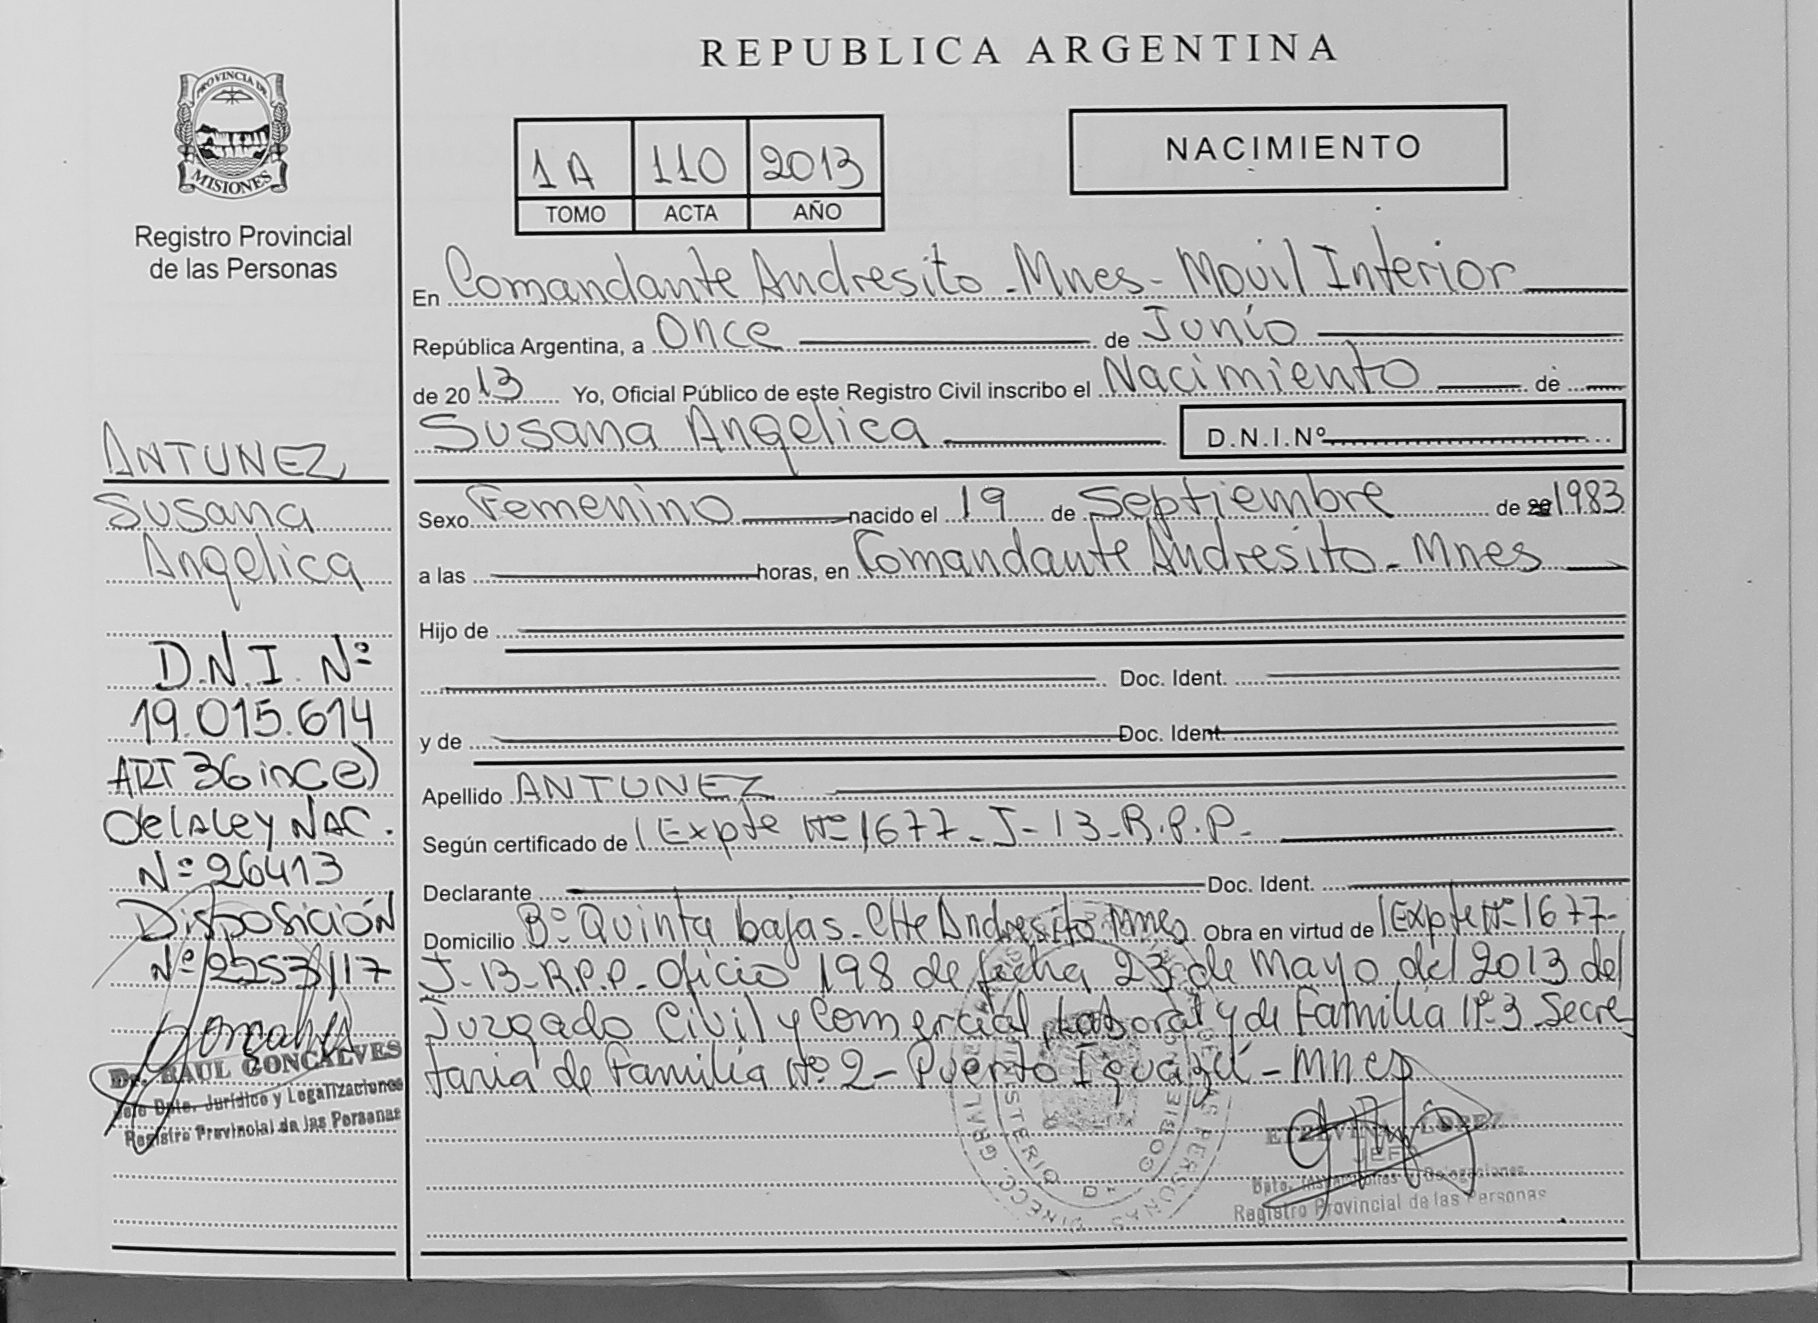 REPUBLICA ARGENTINA
PROVINCIA DE
MISIONES
Registro Provincial
de las Personas
1A 110 2013
TOMO ACTA AÑO
NACIMIENTO
En Comandante Andresito - Mnes - Movil Interior
República Argentina, a Once de Junio
de 2013 Yo, Oficial Público de este Registro Civil inscribo el Nacimiento de
Susana Angelica D.N.I.Nº
Sexo Femenino nacido el 19 de Septiembre de 1983
a las horas, en Comandante Andresito - Mnes
Hijo de
Doc. Ident.
y de Doc. Ident.
Apellido ANTUNEZ
Según certificado de Expte Nº 1677-J-13-R.P.P.
Declarante Doc. Ident.
Domicilio Bº Quinta bajas - Ctte Andresito Mnes Obra en virtud de Expte Nº 1677-
J-13-R.P.P. Oficio 198 de fecha 23 de Mayo del 2013 del
Juzgado Civil y Comercial, Laboral y de Familia Nº 3 Secre
taria de Familia Nº 2 - Puerto Iguazú - Mnes
ANTUNEZ
Susana
Angelica
D.N.I. Nº
19.015.614
ART 36 inc e)
de la Ley NAC.
Nº 26413
Disposición
Nº 2253/17
Dr. RAUL GONCALVES
Jefe Dpto. Jurídico y Legalizaciones
Registro Provincial de las Personas
LOPEZ
JEFA
Registro Provincial de las Personas